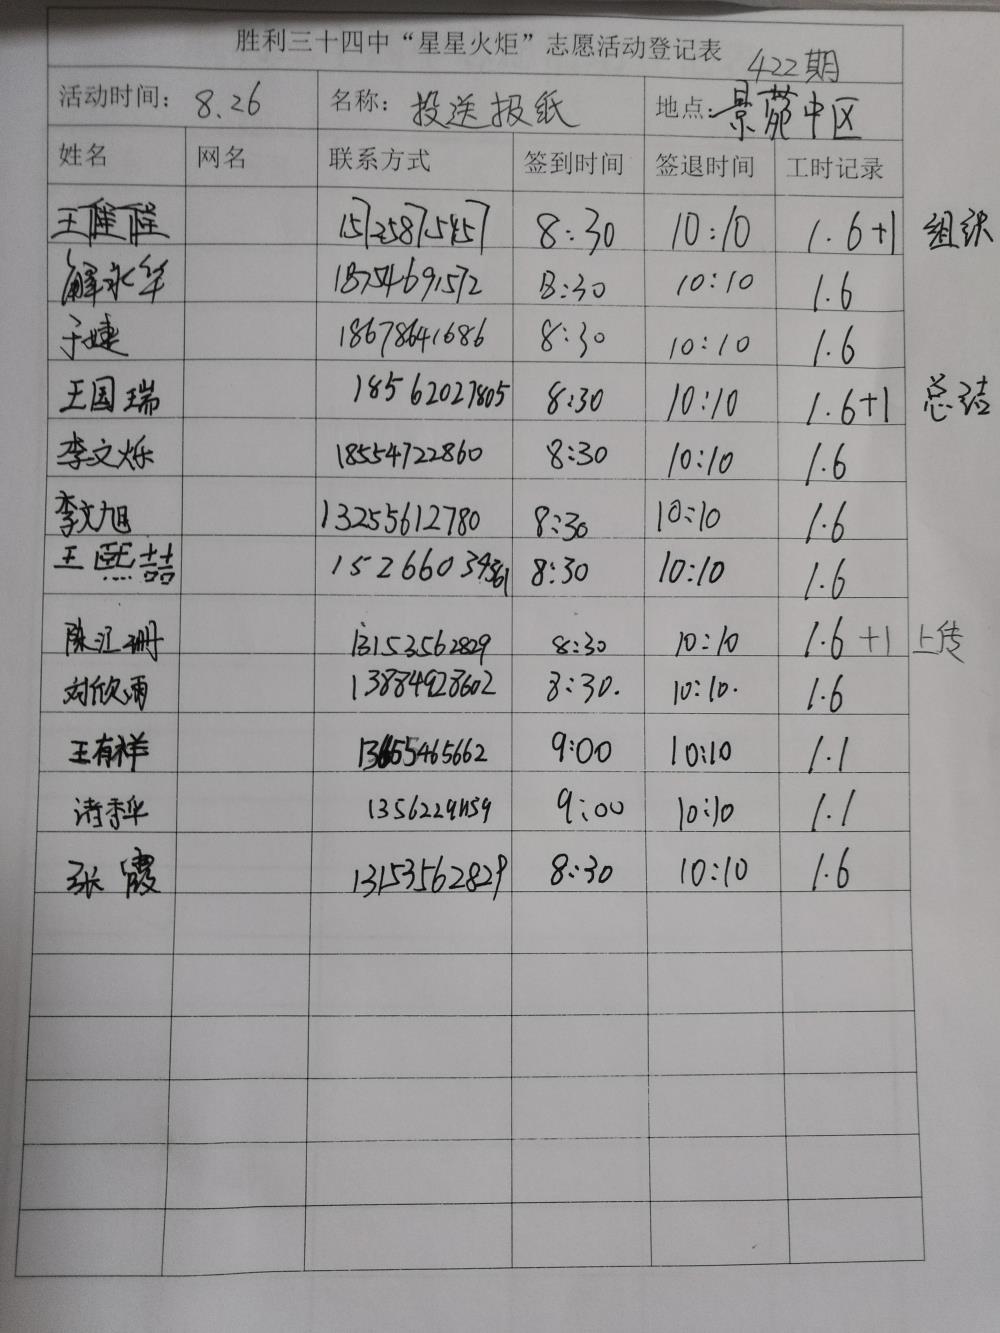 胜利三十四中“星星火炬”志愿活动登记表 422期
活动时间: 8.26 名称: 投送报纸 地点: 景苑中区
姓名 网名 联系方式 签到时间 签退时间 工时记录
王 8:30 10:10 1.6+1 组织
解永华 18754691572 8:30 10:10 1.6
于婕 18678641686 8:30 10:10 1.6
王国瑞 18562027805 8:30 10:10 1.6+1 总结
李文烁 18554722860 8:30 10:10 1.6
李文旭 13255612780 8:30 10:10 1.6
王熙喆 15266034361 8:30 10:10 1.6
陈汇珊 13153562829 8:30 10:10 1.6+1 上传
刘欣雨 13884928602 8:30. 10:10. 1.6
王有祥 13655465662 9:00 10:10 1.1
9:00 10:10 1.1
张霞 13153562829 8:30 10:10 1.6